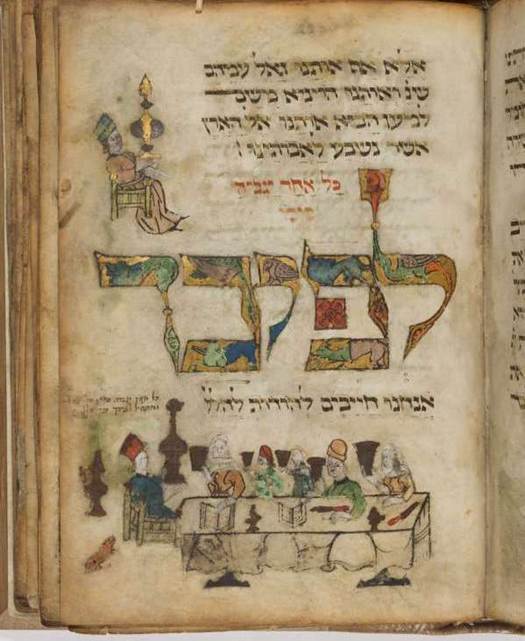 אלא אף אותנו גאל עמהם
שנ׳ ואותנו הוציא משם
למען הביא אותנו אל הארץ
אשר נשבע לאבותינו
כל אחד יגביה
כוסו
לפיכך
אנחנו חייבים להודות להלל